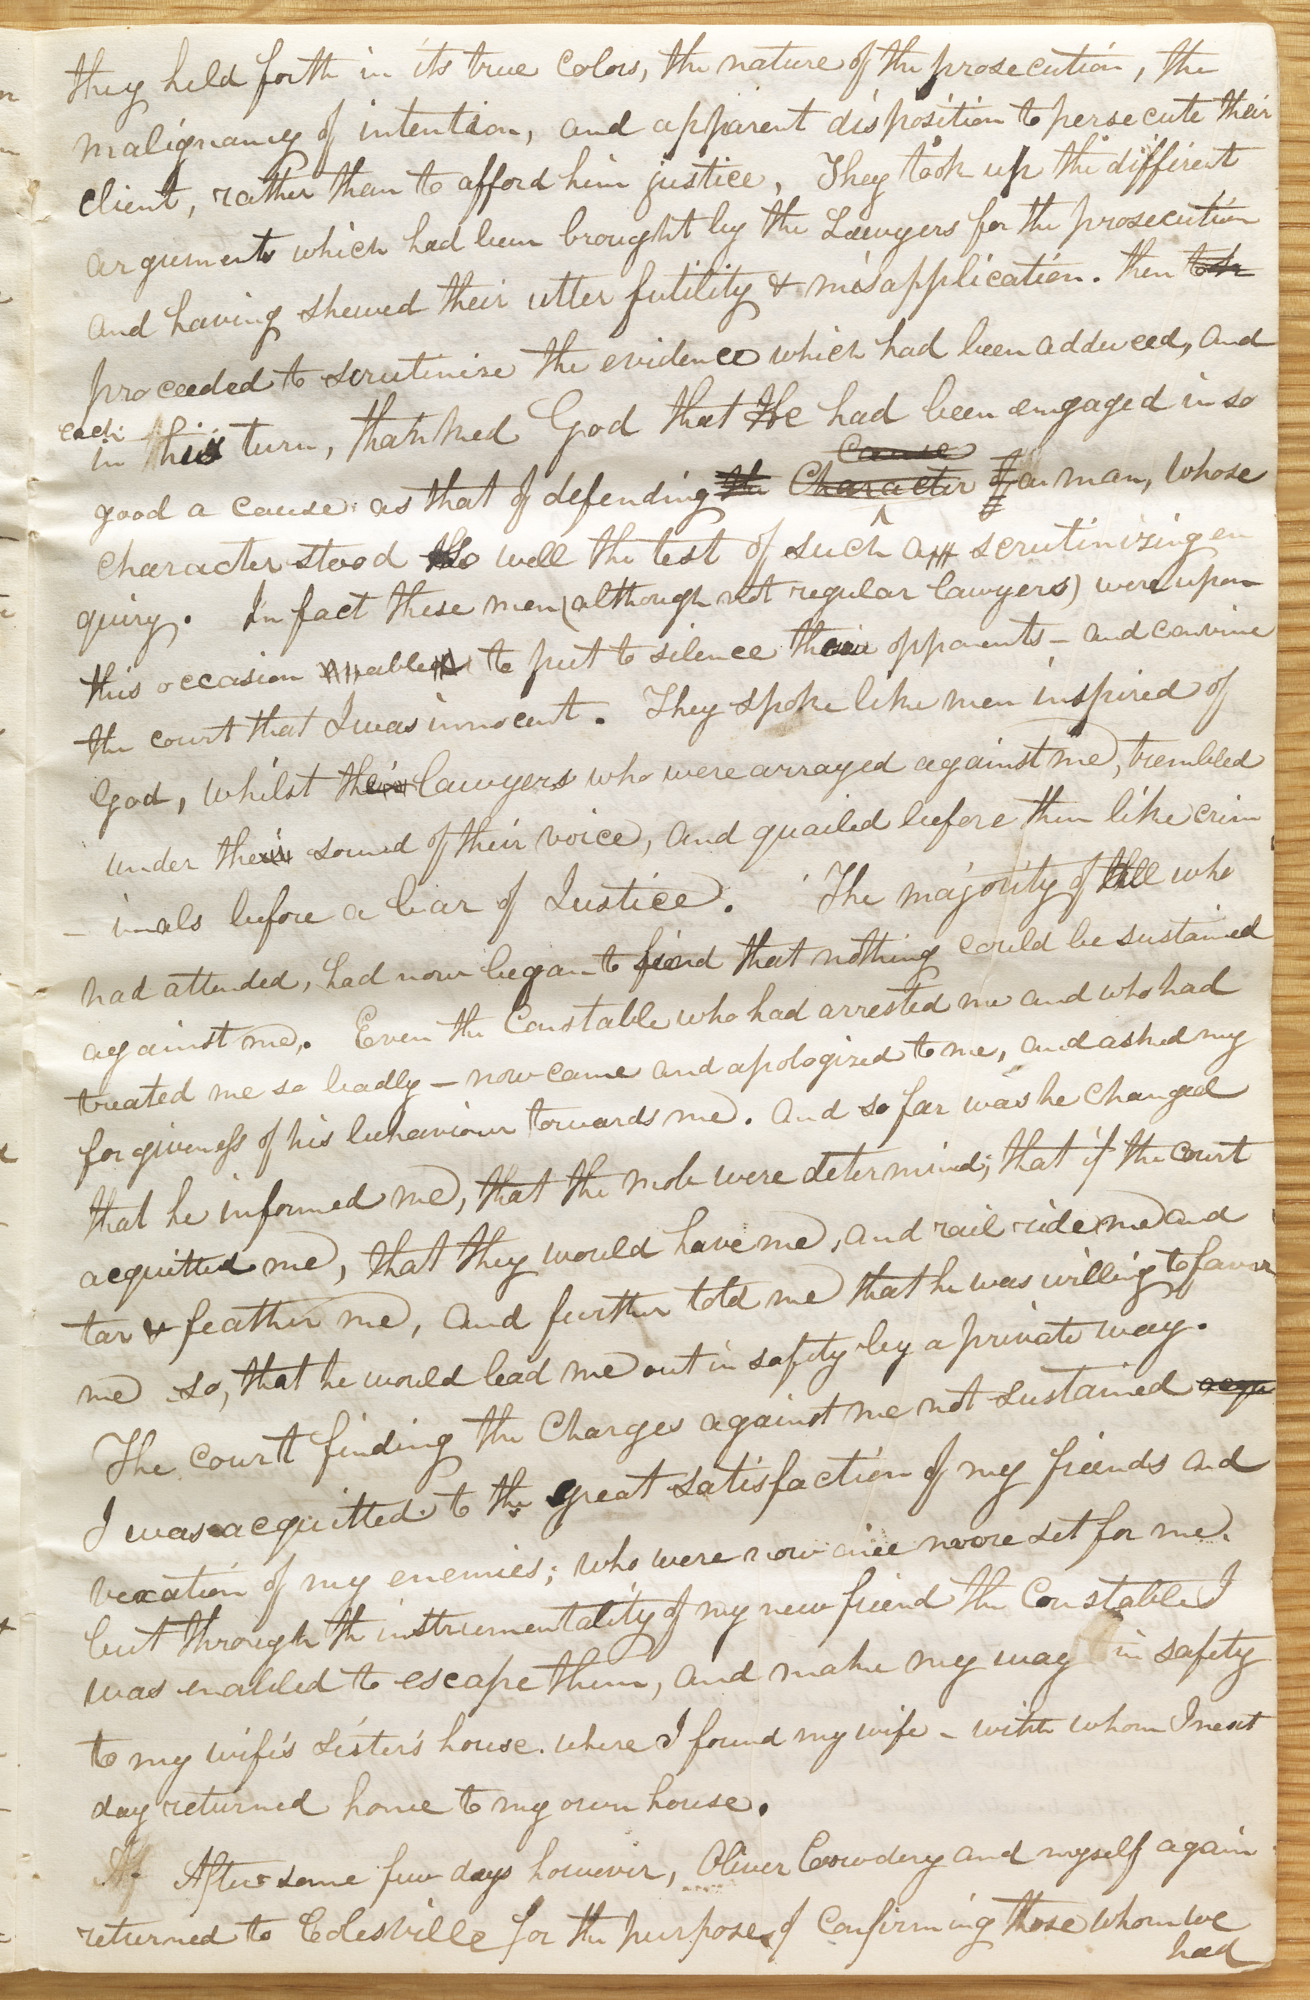 they held forth in its true colors, the nature of the prosecution, the
malignancy of intention, and apparent disposition to persecute their
client, rather than to afford him justice, They took up the different
arguments which had been brought by the Lawyers for the prosecution
and having shewed their utter futility & misapplication. then to sc
proceeded to scrutinize the evidence which had been adduced, and
each
in his turn, thanked God that he had been engaged in so
cause
good a cause as that of defending the Character of a man, whose
character stood so well the test of such a scrutinizing en
quiry. In fact these men (although not regular lawyers) were upon
this occasion able to put to silence their opponents – and convince
the court that I was innocent. They spoke like men inspired of
God, whilst the lawyers who were arrayed against me, trembled
under the sound of their voice, and quailed before them like crim
– inals before a bar of Justice. The majority of all who
had attended, had now began to find that nothing could be sustained
against me. Even the Constable who had arrested me and who had
treated me so badly – now came and apologized to me, and asked my
forgiveness of his behaviour towards me. And so far was he changed
that he informed me, that the mob were determined, that if the court
acquitted me, that they would have me, and rail ride me and
tar & feather me, and further told me that he was willing to favor
me so, that he would lead me out in safety by a private way.
The court finding the charges against me not sustained acqu
I was acquitted. to the great satisfaction of my friends and
vexation of my enemies; who were now once more set for me.
but through the instrumentality of my new friend the Constable I
was enabled to escape them, and make my way in safety
to my wife's sister's house. where I found my wife – with whom I next
day returned home to my own house.
After some few days however, Oliver Cowdery and myself again
returned to Colesville for the purpose of Confirming those whom we
had